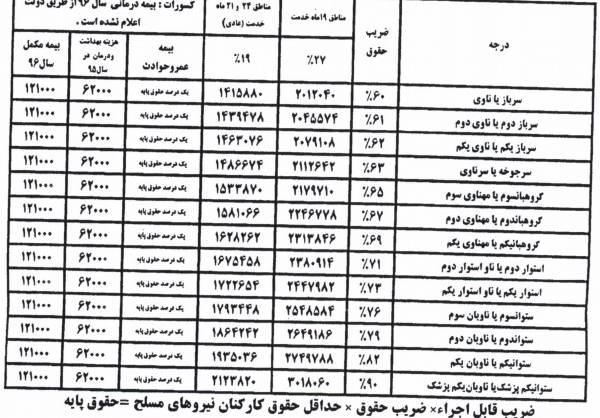 درجه | ضریب حقوق | مناطق ۱۹ ماه خدمت ٪۲۷ | مناطق ۲۴ و ۲۱ ماه خدمت (عادی) ٪۱۹ | کسورات : بیمه درمانی سال ۹۶ از طریق دولت اعلام نشده است .
بیمه عمروحوادث | هزینه بهداشت ودرمان در سال۹۵ | بیمه مکمل سال۹۶
سرباز یا ناوی | ٪۶۰ | ۲۰۱۲۰۴۰ | ۱۴۱۵۸۸۰ | یک درصد حقوق پایه | ۶۲۰۰۰ | ۱۲۱۰۰۰
سرباز دوم یا ناوی دوم | ٪۶۱ | ۲۰۴۵۵۷۴ | ۱۴۳۹۴۷۸ | یک درصد حقوق پایه | ۶۲۰۰۰ | ۱۲۱۰۰۰
سرباز یکم یا ناوی یکم | ٪۶۲ | ۲۰۷۹۱۰۸ | ۱۴۶۳۰۷۶ | یک درصد حقوق پایه | ۶۲۰۰۰ | ۱۲۱۰۰۰
سرجوخه یا سرناوی | ٪۶۳ | ۲۱۱۲۶۴۲ | ۱۴۸۶۶۷۴ | یک درصد حقوق پایه | ۶۲۰۰۰ | ۱۲۱۰۰۰
گروهبانسوم یا مهناوی سوم | ٪۶۵ | ۲۱۷۹۷۱۰ | ۱۵۳۳۸۷۰ | یک درصد حقوق پایه | ۶۲۰۰۰ | ۱۲۱۰۰۰
گروهباندوم یا مهناوی دوم | ٪۶۷ | ۲۲۴۶۷۷۸ | ۱۵۸۱۰۶۶ | یک درصد حقوق پایه | ۶۲۰۰۰ | ۱۲۱۰۰۰
گروهبانیکم یا مهناوی یکم | ٪۶۹ | ۲۳۱۳۸۴۶ | ۱۶۲۸۲۶۲ | یک درصد حقوق پایه | ۶۲۰۰۰ | ۱۲۱۰۰۰
استوار دوم یا ناو استوار دوم | ٪۷۱ | ۲۳۸۰۹۱۴ | ۱۶۷۵۴۵۸ | یک درصد حقوق پایه | ۶۲۰۰۰ | ۱۲۱۰۰۰
استوار یکم یا ناو استوار یکم | ٪۷۳ | ۲۴۴۷۹۸۲ | ۱۷۲۲۶۵۴ | یک درصد حقوق پایه | ۶۲۰۰۰ | ۱۲۱۰۰۰
ستوانسوم یا ناوبان سوم | ٪۷۶ | ۲۵۴۸۵۸۴ | ۱۷۹۳۴۴۸ | یک درصد حقوق پایه | ۶۲۰۰۰ | ۱۲۱۰۰۰
ستواندوم یا ناوبان دوم | ٪۷۹ | ۲۶۴۹۱۸۶ | ۱۸۶۴۲۴۲ | یک درصد حقوق پایه | ۶۲۰۰۰ | ۱۲۱۰۰۰
ستوانیکم یا ناوبان یکم | ٪۸۲ | ۲۷۴۹۷۸۸ | ۱۹۳۵۰۳۶ | یک درصد حقوق پایه | ۶۲۰۰۰ | ۱۲۱۰۰۰
ستوانیکم پزشک یا ناوبان یکم پزشک | ٪۹۰ | ۳۰۱۸۰۶۰ | ۲۱۲۳۸۲۰ | یک درصد حقوق پایه | ۶۲۰۰۰ | ۱۲۱۰۰۰
ضریب قابل اجراء× ضریب حقوق × حداقل حقوق کارکنان نیروهای مسلح =حقوق پایه